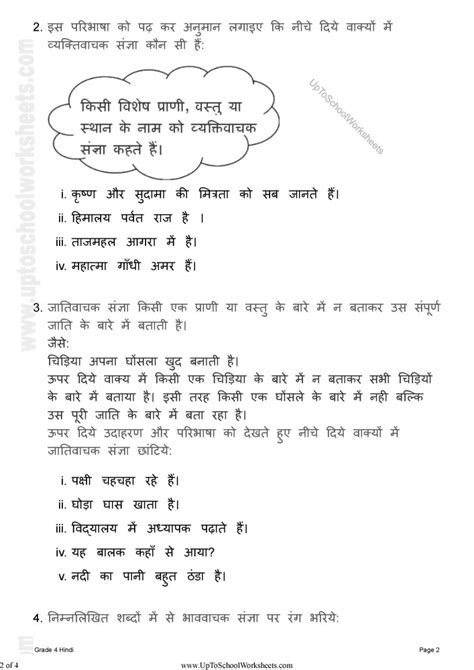 2. इस परिभाषा को पढ़ कर अनुमान लगाइए कि नीचे दिये वाक्यों में
व्यक्तिवाचक संज्ञा कौन सी हैं:
UpToSchoolWorksheets
किसी विशेष प्राणी, वस्तु या
स्थान के नाम को व्यक्तिवाचक
संज्ञा कहते हैं।
www.uptoschoolworksheets.com
i. कृष्ण और सुदामा की मित्रता को सब जानते हैं।
ii. हिमालय पर्वत राज है ।
iii. ताजमहल आगरा में है।
iv. महात्मा गाँधी अमर हैं।
3. जातिवाचक संज्ञा किसी एक प्राणी या वस्तु के बारे में न बताकर उस संपूर्ण
जाति के बारे में बताती है।
जैसे:
चिड़िया अपना घोंसला खुद बनाती है।
ऊपर दिये वाक्य में किसी एक चिड़िया के बारे में न बताकर सभी चिड़ियों
के बारे में बताया है। इसी तरह किसी एक घोंसले के बारे में नही बल्कि
उस पूरी जाति के बारे में बता रहा है।
ऊपर दिये उदाहरण और परिभाषा को देखते हुए नीचे दिये वाक्यों में
जातिवाचक संज्ञा छांटिये:
i. पक्षी चहचहा रहे हैं।
ii. घोड़ा घास खाता है।
iii. विद्यालय में अध्यापक पढ़ाते हैं।
iv. यह बालक कहाँ से आया?
v. नदी का पानी बहुत ठंडा है।
4. निम्नलिखित शब्दों में से भाववाचक संज्ञा पर रंग भरिये:
Grade 4 Hindi
Page 2
2 of 4
www.UpToSchoolWorksheets.com